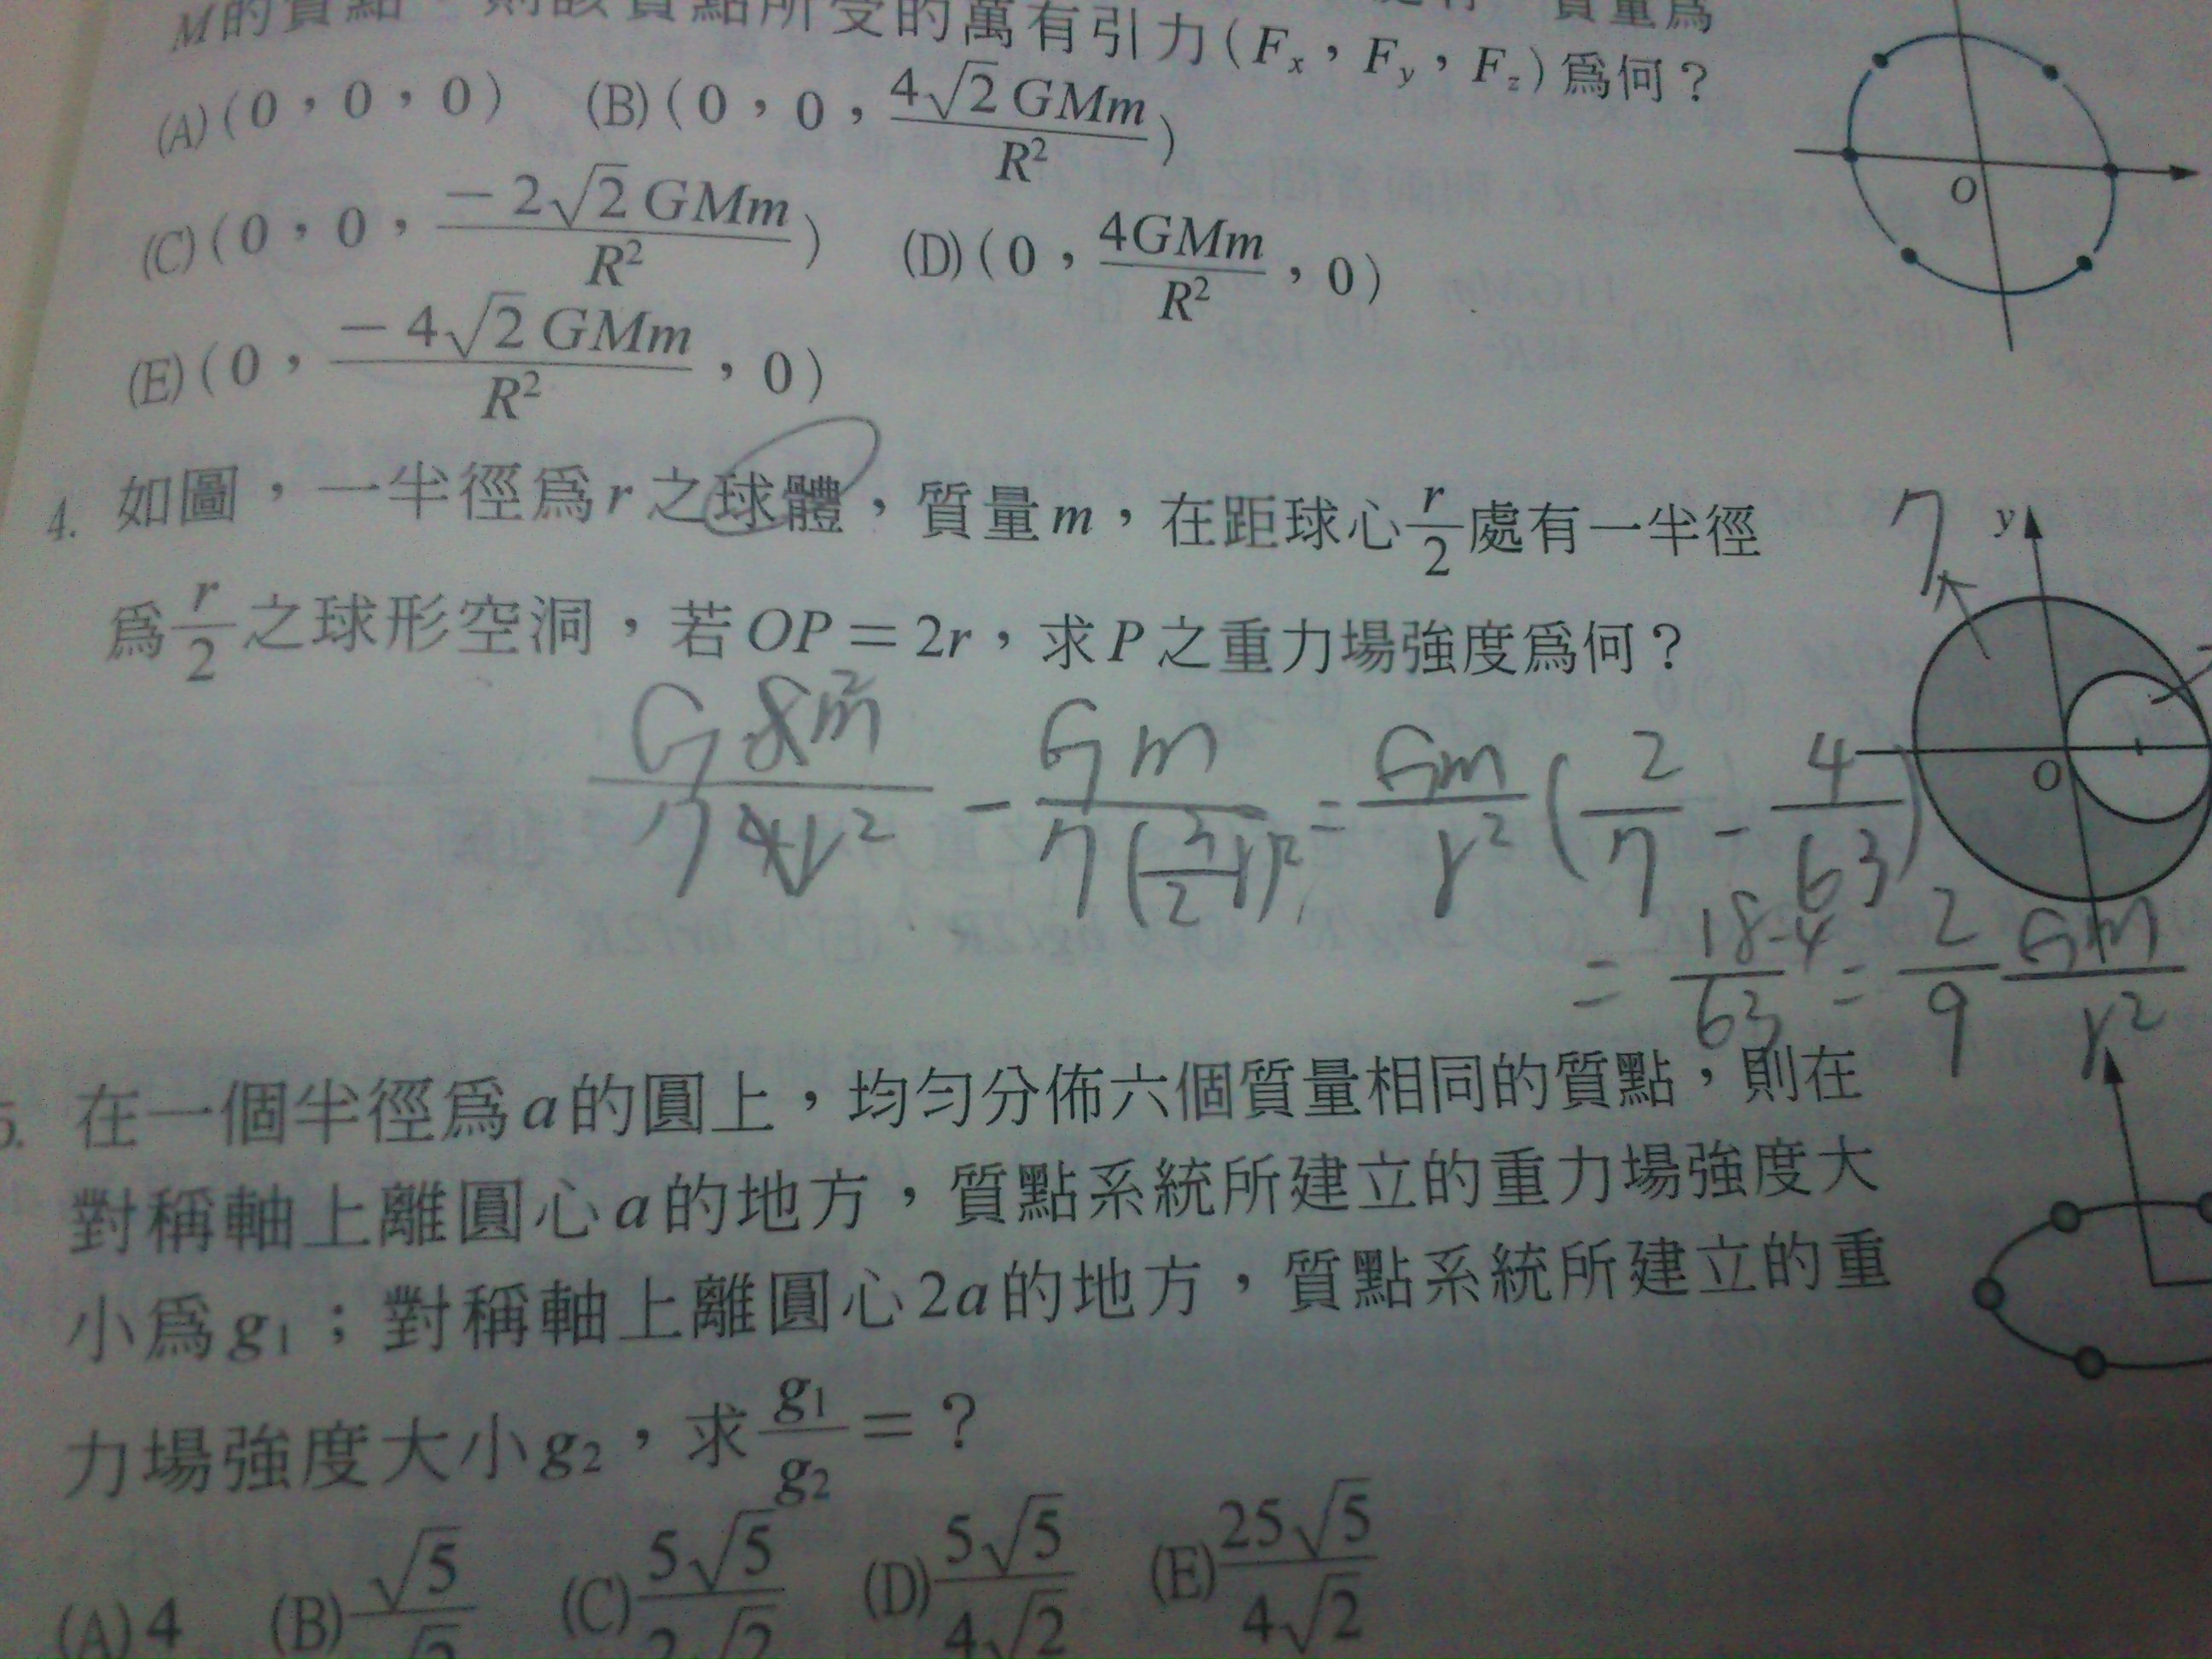 M的質點，則該質點所受的萬有引力(Fx，Fy，Fz)爲何？
質量爲
(A)(0，0，0) (B)(0，0，4√2 GMm/R²)
(C)(0，0，−2√2 GMm/R²) (D)(0，4GMm/R²，0)
(E)(0，−4√2 GMm/R²，0)
O
4. 如圖，一半徑爲r之球體，質量m，在距球心r/2處有一半徑
爲r/2之球形空洞，若OP＝2r，求P之重力場強度爲何？
7
y
O
G8m/7·4r² − Gm/7(3/2 r)² = Gm/r² (2/7 − 4/63)
= 18-4/63 = 2/9 Gm/r²
5. 在一個半徑爲a的圓上，均勻分佈六個質量相同的質點，則在
對稱軸上離圓心a的地方，質點系統所建立的重力場強度大
小爲g₁；對稱軸上離圓心2a的地方，質點系統所建立的重
力場強度大小g₂，求g₁/g₂＝？
(A)4 (B)√5 (C)5√5/2√2 (D)5√5/4√2 (E)25√5/4√2